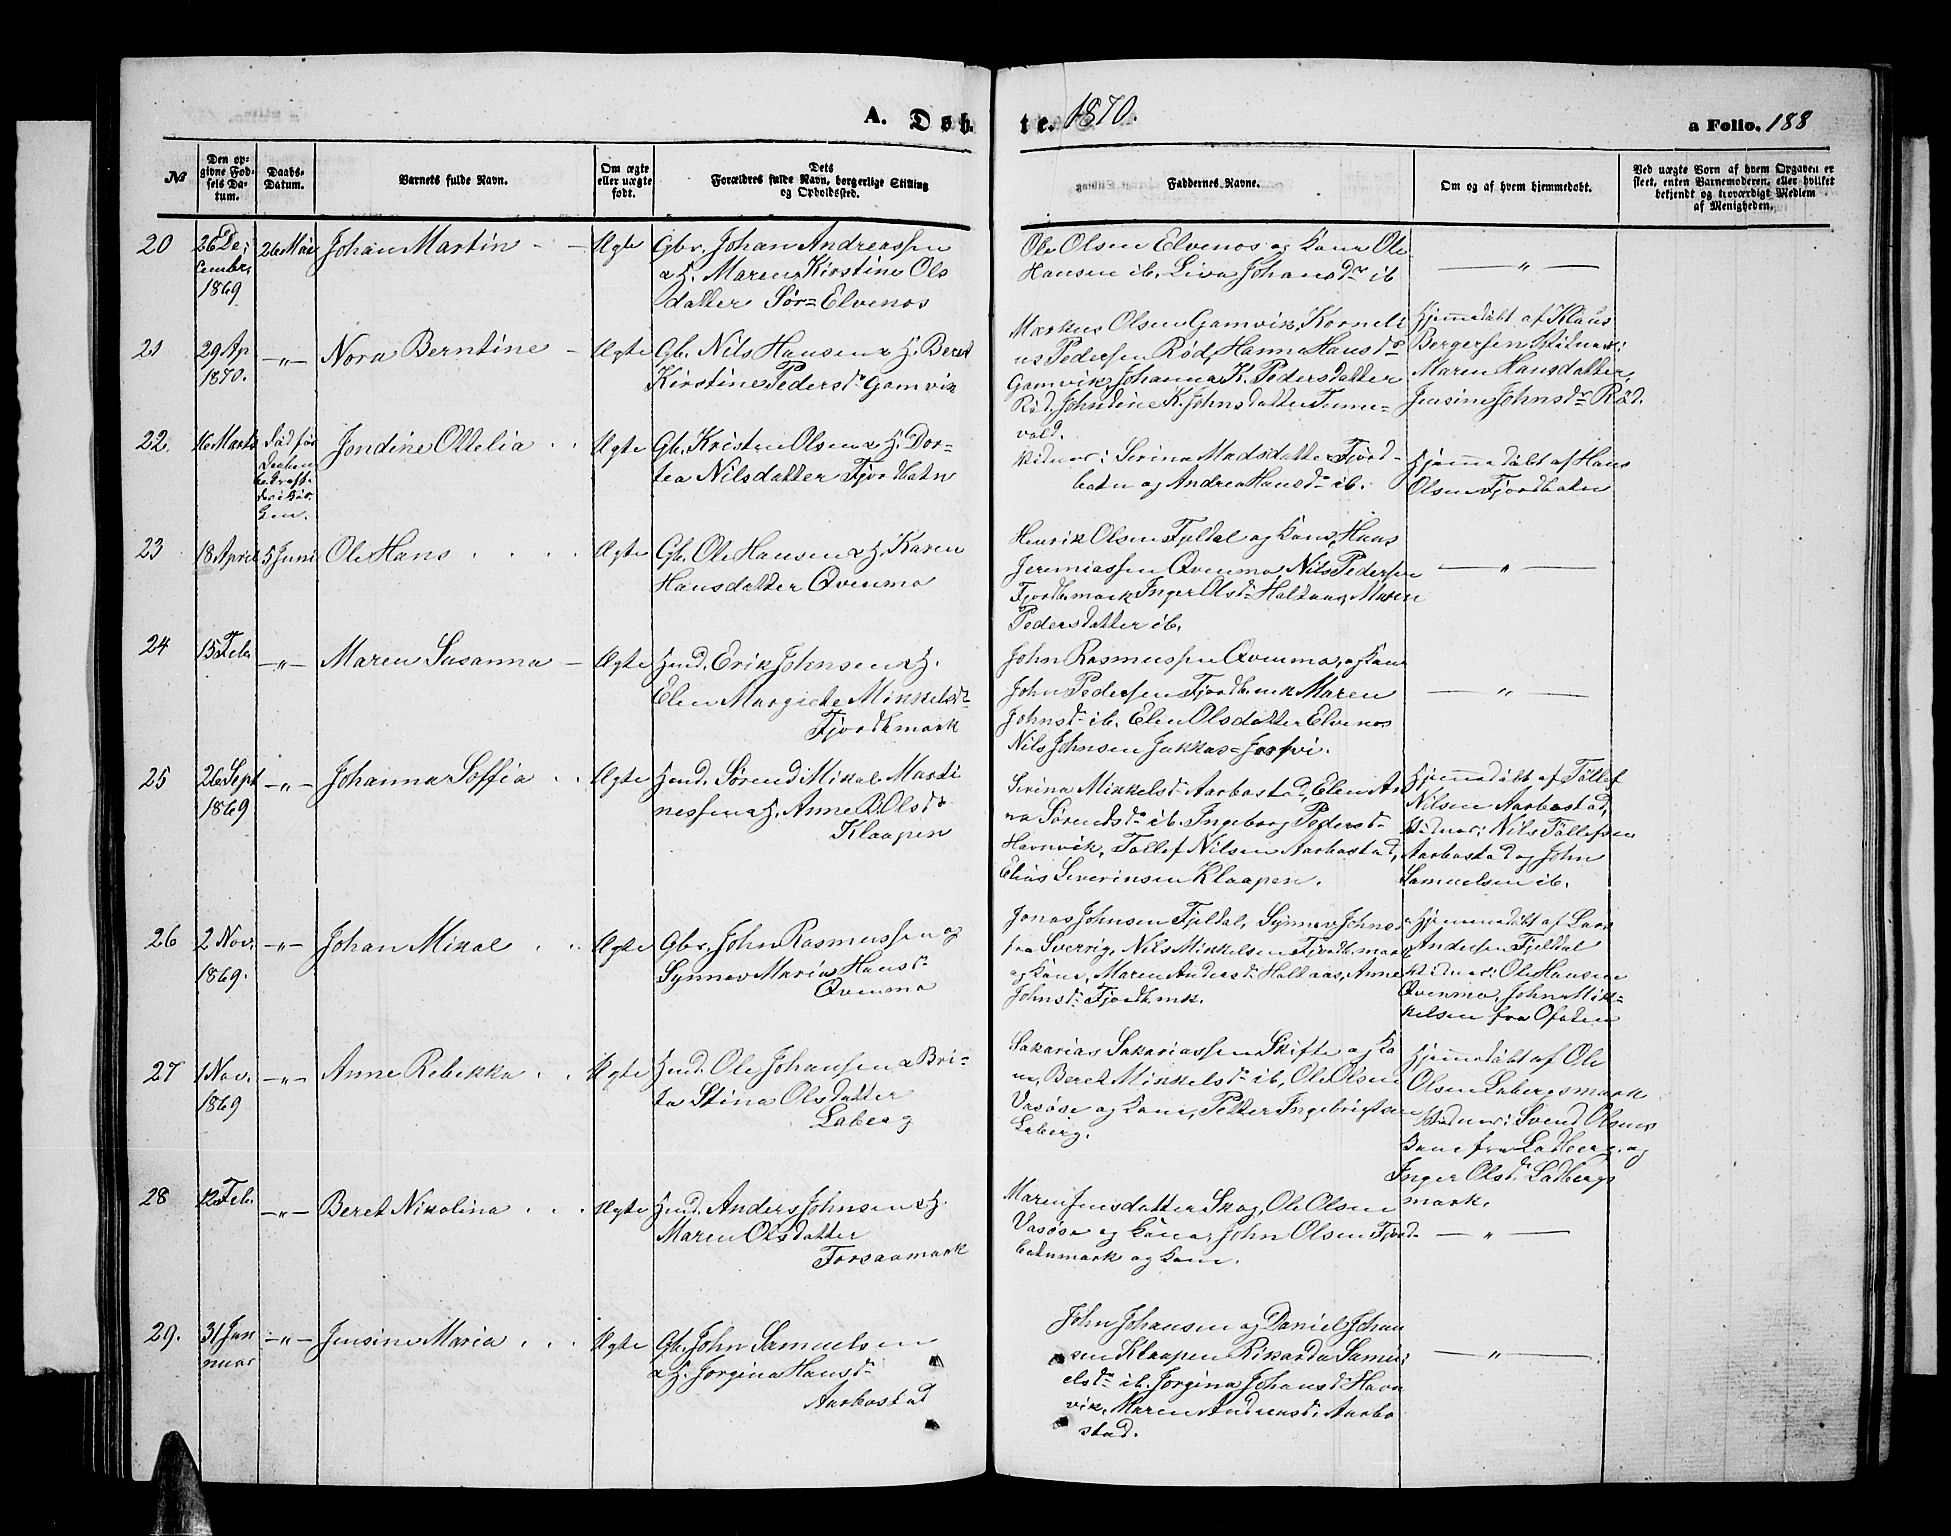 A. Døb-
te. 1870.
a Folio. 188
No
Den op-
givne Fød-
sels Da-
tum.
Daabs-
Datum.
Barnets fulde Navn.
Om ægte
eller uægte
født.
Dets
Forældres fulde Navn, borgerlige Stilling
og Opholdssted.
Faddernes Navne.
Om og af hvem hjemmedøbt.
Ved uægte Børn af hvem Opgaven er
skeet, enten Barnemoderen, eller hvilket
bekjendt og troværdigt Medlem
af Menigheden.
20
26 De-
cember,
1869
26 Mai
Johan Martin
Ægte
Gbr. Johan Andreassen
& H. Maren Kirstine Ols
datter Sør=Elvenos
Ole Olsen Elvenos og Kona Ole
Hansen ib, Liva Johansdr ib
— " —
21
29 Ap
1870.
— " —
Nora Berntine
Ægte
Gb. Nils Hansen & H. Beret
Kirstine Pedersdr Gamvik
Markus Olsen Gamvik, Korneli
us Pedersen Rød, Hanna Hansdr
Gamvik, Johanna K. Pedersdatter
Rød, Johndine K. Johnsdatter Tenne-
vold.
Hjemmedøbt af Klaus
Bergersen Vidner:
Maren Hansdatter,
Jensine Johnsdr Rød.
22.
16 Marts
Død før
Daaben
bekræfte
des i Kir-
ken.
Jondine Ottelia
Ægte
Gb. Kristen Olsen & H. Dor-
tea Nilsdatter Fjordbotn
Vidner: Serina Madsdatter Fjord-
botn og Andrea Hansdr ib.
Hjemmedøbt af Hans
Olsen Fjordbotn
23
18 April
5 Juni
Ole Hans
Ægte
Gb. Ole Hansen & H. Karen
Hansdatter Qvenmo
Henrik Olsen Fjeldal og Kone, Hans
Jeremiassen Qvenmo, Nils Pedersen
Fjordb.mark Inger Olsdr Holtaas, Maren
Pedersdatter ib.
— " —
24
15 Feb.
— " —
Maren Susanna
Ægte
Jnd. Erik Johnsen & H.
Elen Margrete Mikkelsdr
Fjordb.mark
John Rasmussen Qvenmo, og Kone
John Pedersen Fjordb.mk Maren
Johnsdr ib. Elen Olsdatter Elvenos
Nils Johnsen Jukkas=Jærfvi.
— " —
25
26 Sept
1869
— " —
Johanna Soffia
Ægte
Jnd. Sørend Mikal Marti
nessen & H. Anne B. Olsdr
Klaapen
Serina Mikkelsdr Aarbostad, Elen An
na Sørendsdr ib. Ingeborg Pedersdr
Havnvik, Tollef Nilsen Aarbostad,
Elias Severinsen Klaapen.
Hjemmedøbt af Tollef
Nilsen Aarbostad,
Vidner: Nils Tollefsen
Aarbostad og John
Samuelsen ib.
26
2 Nov.
1869.
— " —
Johan Mikal
Ægte
Gbr. John Rasmussen og
Synnev Maria Hansdr
Qvenmo
Jonas Johnsen Fjeldal, Synnev Johnsdr
fra Sverrig, Nils Mikkelsen Fjordb.mark
og Kone, Maren Andersdr Holtaas, Anne
Johnsdr Fjordb.mk.
Hjemmedøbt af Lars
Andersen Fjeldal
Vidner: Ole Hansen
Qvenmo, John Mik-
kelsen fra Ofoten
27
1 Nov.
1869
— " —
Anne Rebekka
Ægte
Jnd. Ole Johansen & Bri-
ta Stina Olsdatter
Laberg
Sakarias Sakariassen Skifte og Ko
ne, Beret Mikkelsdr ib, Ole Olsen
Vasøse og Kone, Petter Ingebrigtsen
Laberg.
Hjemmedøbt af Ole
Olsen Labergsmark
Vidner: Svend Olsens
Kone fra Ladberg og
Inger Olsdr Ladbergs
mark.
28
12 Feb.
— " —
Beret Nikolina
Ægte
Jnd. Anders Johnsen & H.
Maren Olsdatter
Forsaamark
Maren Jensdatter Skog, Ole Olsen
Vasøse og Kone, John Olsen Fjord
botnmark og Kone.
— " —
29.
31 Jan
nuar
— " —
Jensine Maria
Ægte
Gb. John Samuelsen
& H. Jorgina Hansdr
Aarbostad
John Johansen og Daniel Johan
sen Klaapen Rikarda Samu-
elsdr ib. Jorgina Johansdr Havn
vik. Maren Andreasdr Aarbo
stad.
— " —